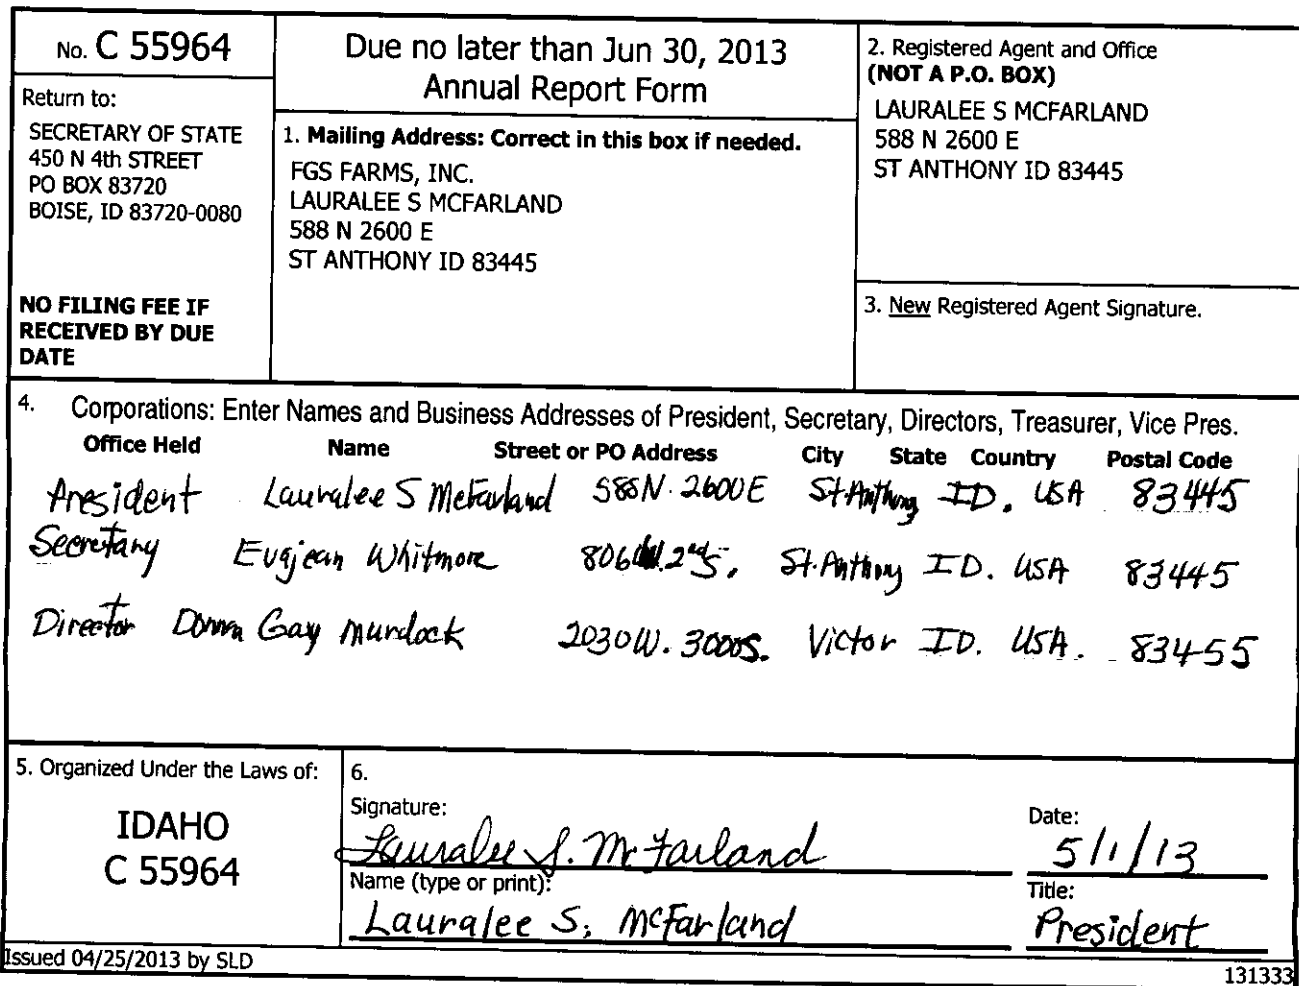 No. C 55964
Return to:
SECRETARY OF STATE
450 N 4th STREET
PO BOX 83720
BOISE, ID 83720-0080
NO FILING FEE IF
RECEIVED BY DUE
DATE
Due no later than Jun 30, 2013
Annual Report Form
1. Mailing Address: Correct in this box if needed.
FGS FARMS, INC.
LAURALEE S MCFARLAND
588 N 2600 E
ST ANTHONY ID 83445
2. Registered Agent and Office
(NOT A P.O. BOX)
LAURALEE S MCFARLAND
588 N 2600 E
ST ANTHONY ID 83445
3. New Registered Agent Signature.
4. Corporations: Enter Names and Business Addresses of President, Secretary, Directors, Treasurer, Vice Pres.
Office Held Name Street or PO Address City State Country Postal Code
President Lauralee S McFarland 588 N. 2600 E St Anthony ID. USA 83445
Secretary Evajean Whitmore 806 W. 2nd S. St. Anthony ID. USA 83445
Director Donna Gay Murdock 2030 W. 3000 S. Victor ID. USA. 83455
5. Organized Under the Laws of:
IDAHO
C 55964
6.
Signature:
Lauralee S. McFarland
Date:
5/1/13
Name (type or print):
Lauralee S. McFarland
Title:
President
Issued 04/25/2013 by SLD
131333